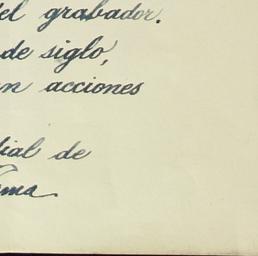 el grabador.
de siglo,
n acciones
ial de
ma